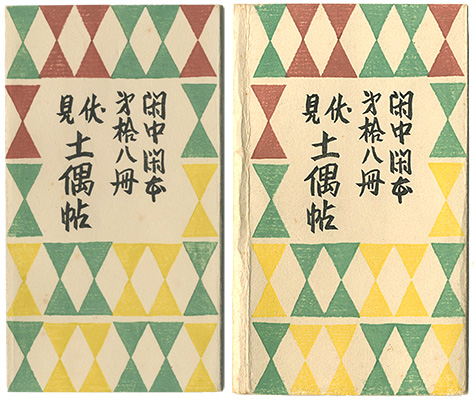 閑中閑本
㐧拾八冊
伏見
土偶帖
閑中閑本
㐧拾八冊
伏見
土偶帖